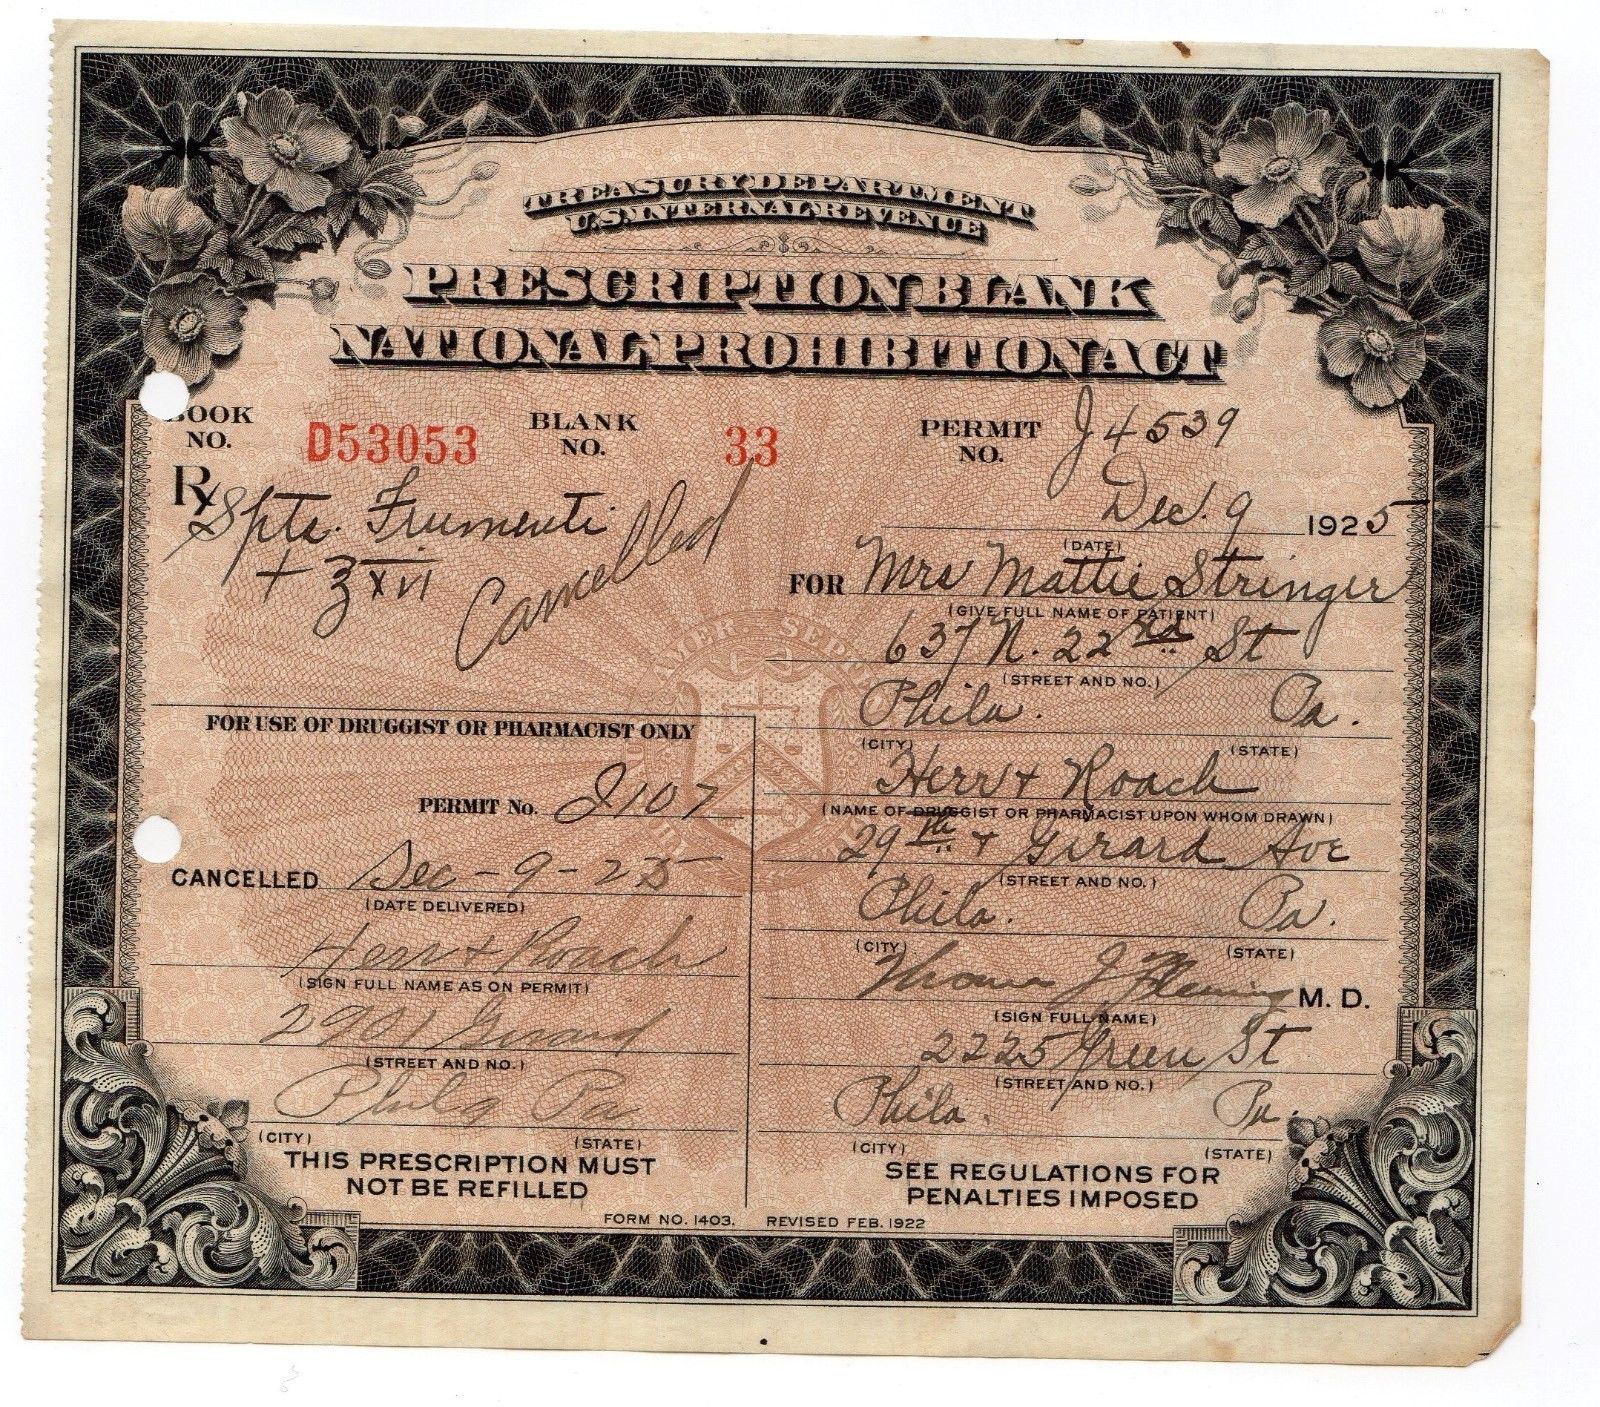 TREASURY DEPARTMENT
U.S. INTERNAL REVENUE
PRESCRIPTION BLANK
NATIONAL PROHIBITION ACT
BOOK NO. D53053 BLANK NO. 33 PERMIT NO. J4539
Rx
Spts. Frumenti
+ ʒ xvi
Cancelled
Dec. 9 1925
(DATE)
FOR Mrs Mattie Stringer
(GIVE FULL NAME OF PATIENT)
637 N. 22nd St
(STREET AND NO.)
Phila. Pa.
(CITY) (STATE)
Herr + Roach
(NAME OF DRUGGIST OR PHARMACIST UPON WHOM DRAWN)
29th + Girard Ave
(STREET AND NO.)
Phila. Pa.
(CITY) (STATE)
Thomas J Fleming M. D.
(SIGN FULL NAME)
2225 Green St
(STREET AND NO.)
Phila. Pa.
(CITY) (STATE)
SEE REGULATIONS FOR
PENALTIES IMPOSED
FOR USE OF DRUGGIST OR PHARMACIST ONLY
PERMIT No. J107
CANCELLED Dec - 9 - 25
(DATE DELIVERED)
Herr + Roach
(SIGN FULL NAME AS ON PERMIT)
2901 Girard
(STREET AND NO.)
Phila Pa
(CITY) (STATE)
THIS PRESCRIPTION MUST
NOT BE REFILLED
FORM NO. 1403. REVISED FEB. 1922